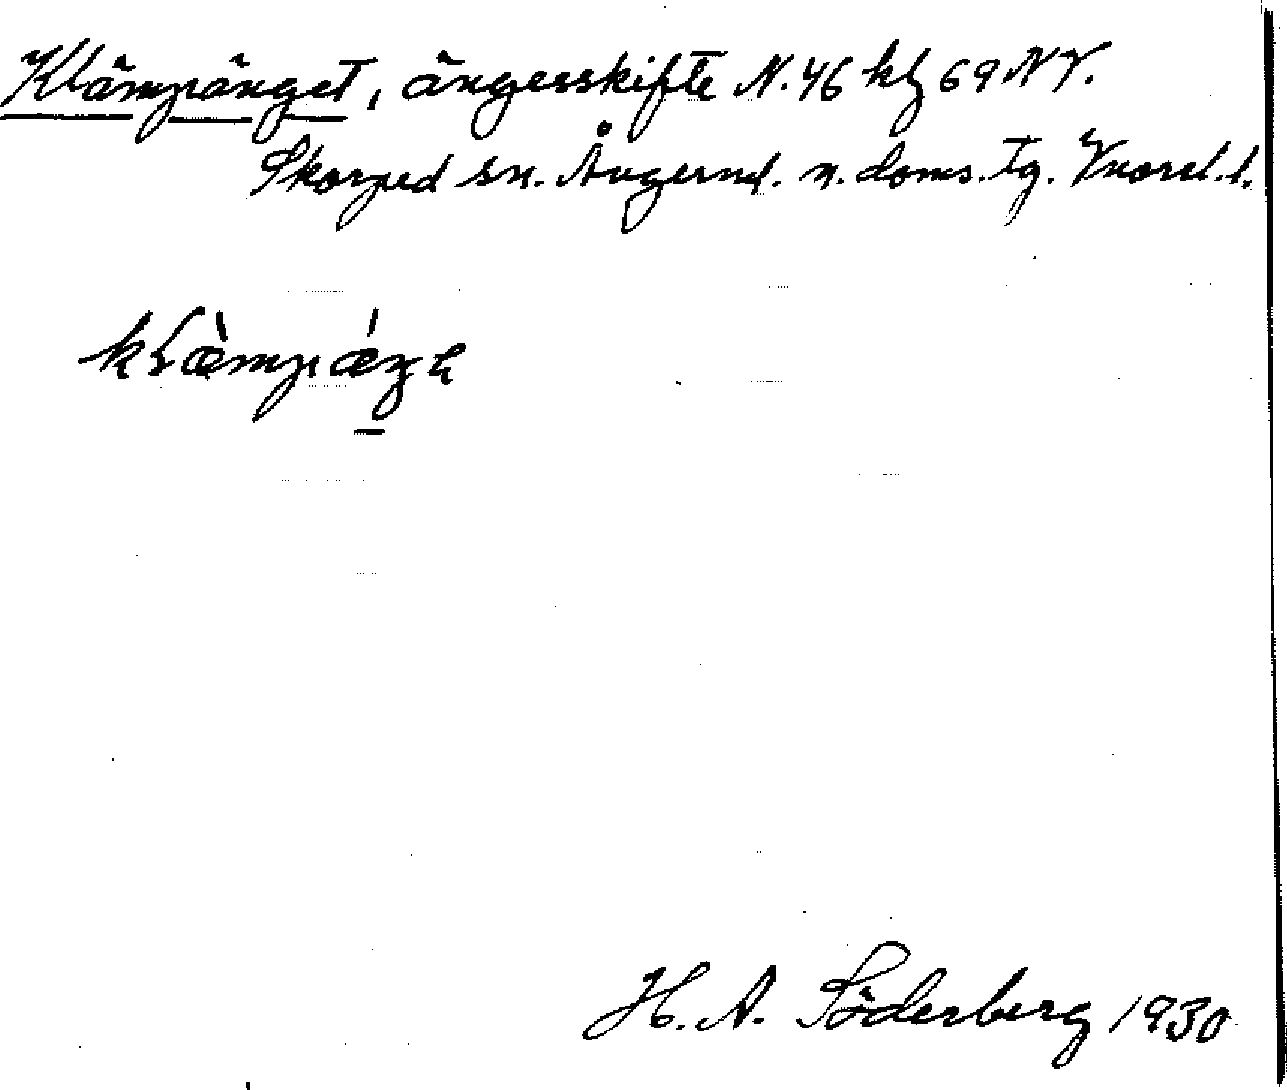 Klämpänget, ängesskifte N.46 klf 69 NV.
Skorped sn. Ångerml. n. doms. tg. Vnorrl. l.
klæ̀mpǽŋɐ
H. A. Söderberg 1930